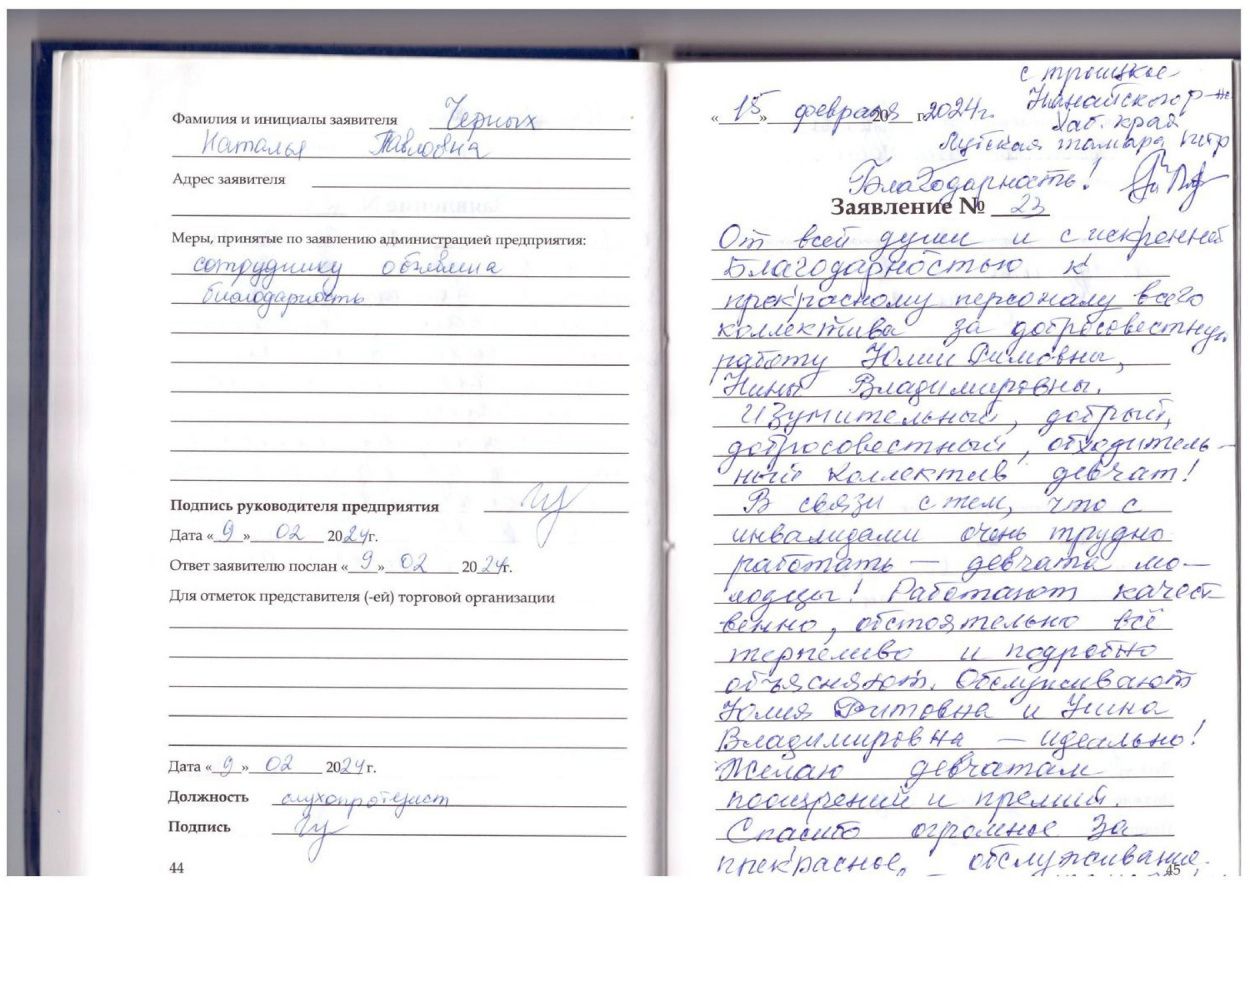 Фамилия и инициалы заявителя Черных
Наталья Павловна
Адрес заявителя
Меры, принятые по заявлению администрацией предприятия:
сотруднику объявлена
благодарность
Подпись руководителя предприятия
Дата «9» 02 2024г.
Ответ заявителю послан «9» 02 2024г.
Для отметок представителя (-ей) торговой организации
Дата «9» 02 2024г.
Должность слухопротезист
Подпись
44
с Троицкое
Нанайского р-на
«15» февраля 20 г. 2024г.
Хаб. край
Тамара
Благодарность!
Заявление № 23
От всей души и с искренней
Благодарностью к
прекрасному персоналу всего
коллектива за добросовестную
работу Юлии Римовны,
Нины Владимировны.
Изумительный, добрый,
добросовестный, обходитель-
ный коллектив девчат!
В связи с тем, что с
инвалидами очень трудно
работать — девчата мо-
лодцы! Работают качест-
венно, обстоятельно всё
терпеливо и подробно
объясняют. Обслуживают
Юлия Римовна и Нина
Владимировна — идеально!
Желаю девчатам
поощрений и премий.
Спасибо огромное за
прекрасное обслуживание.
45